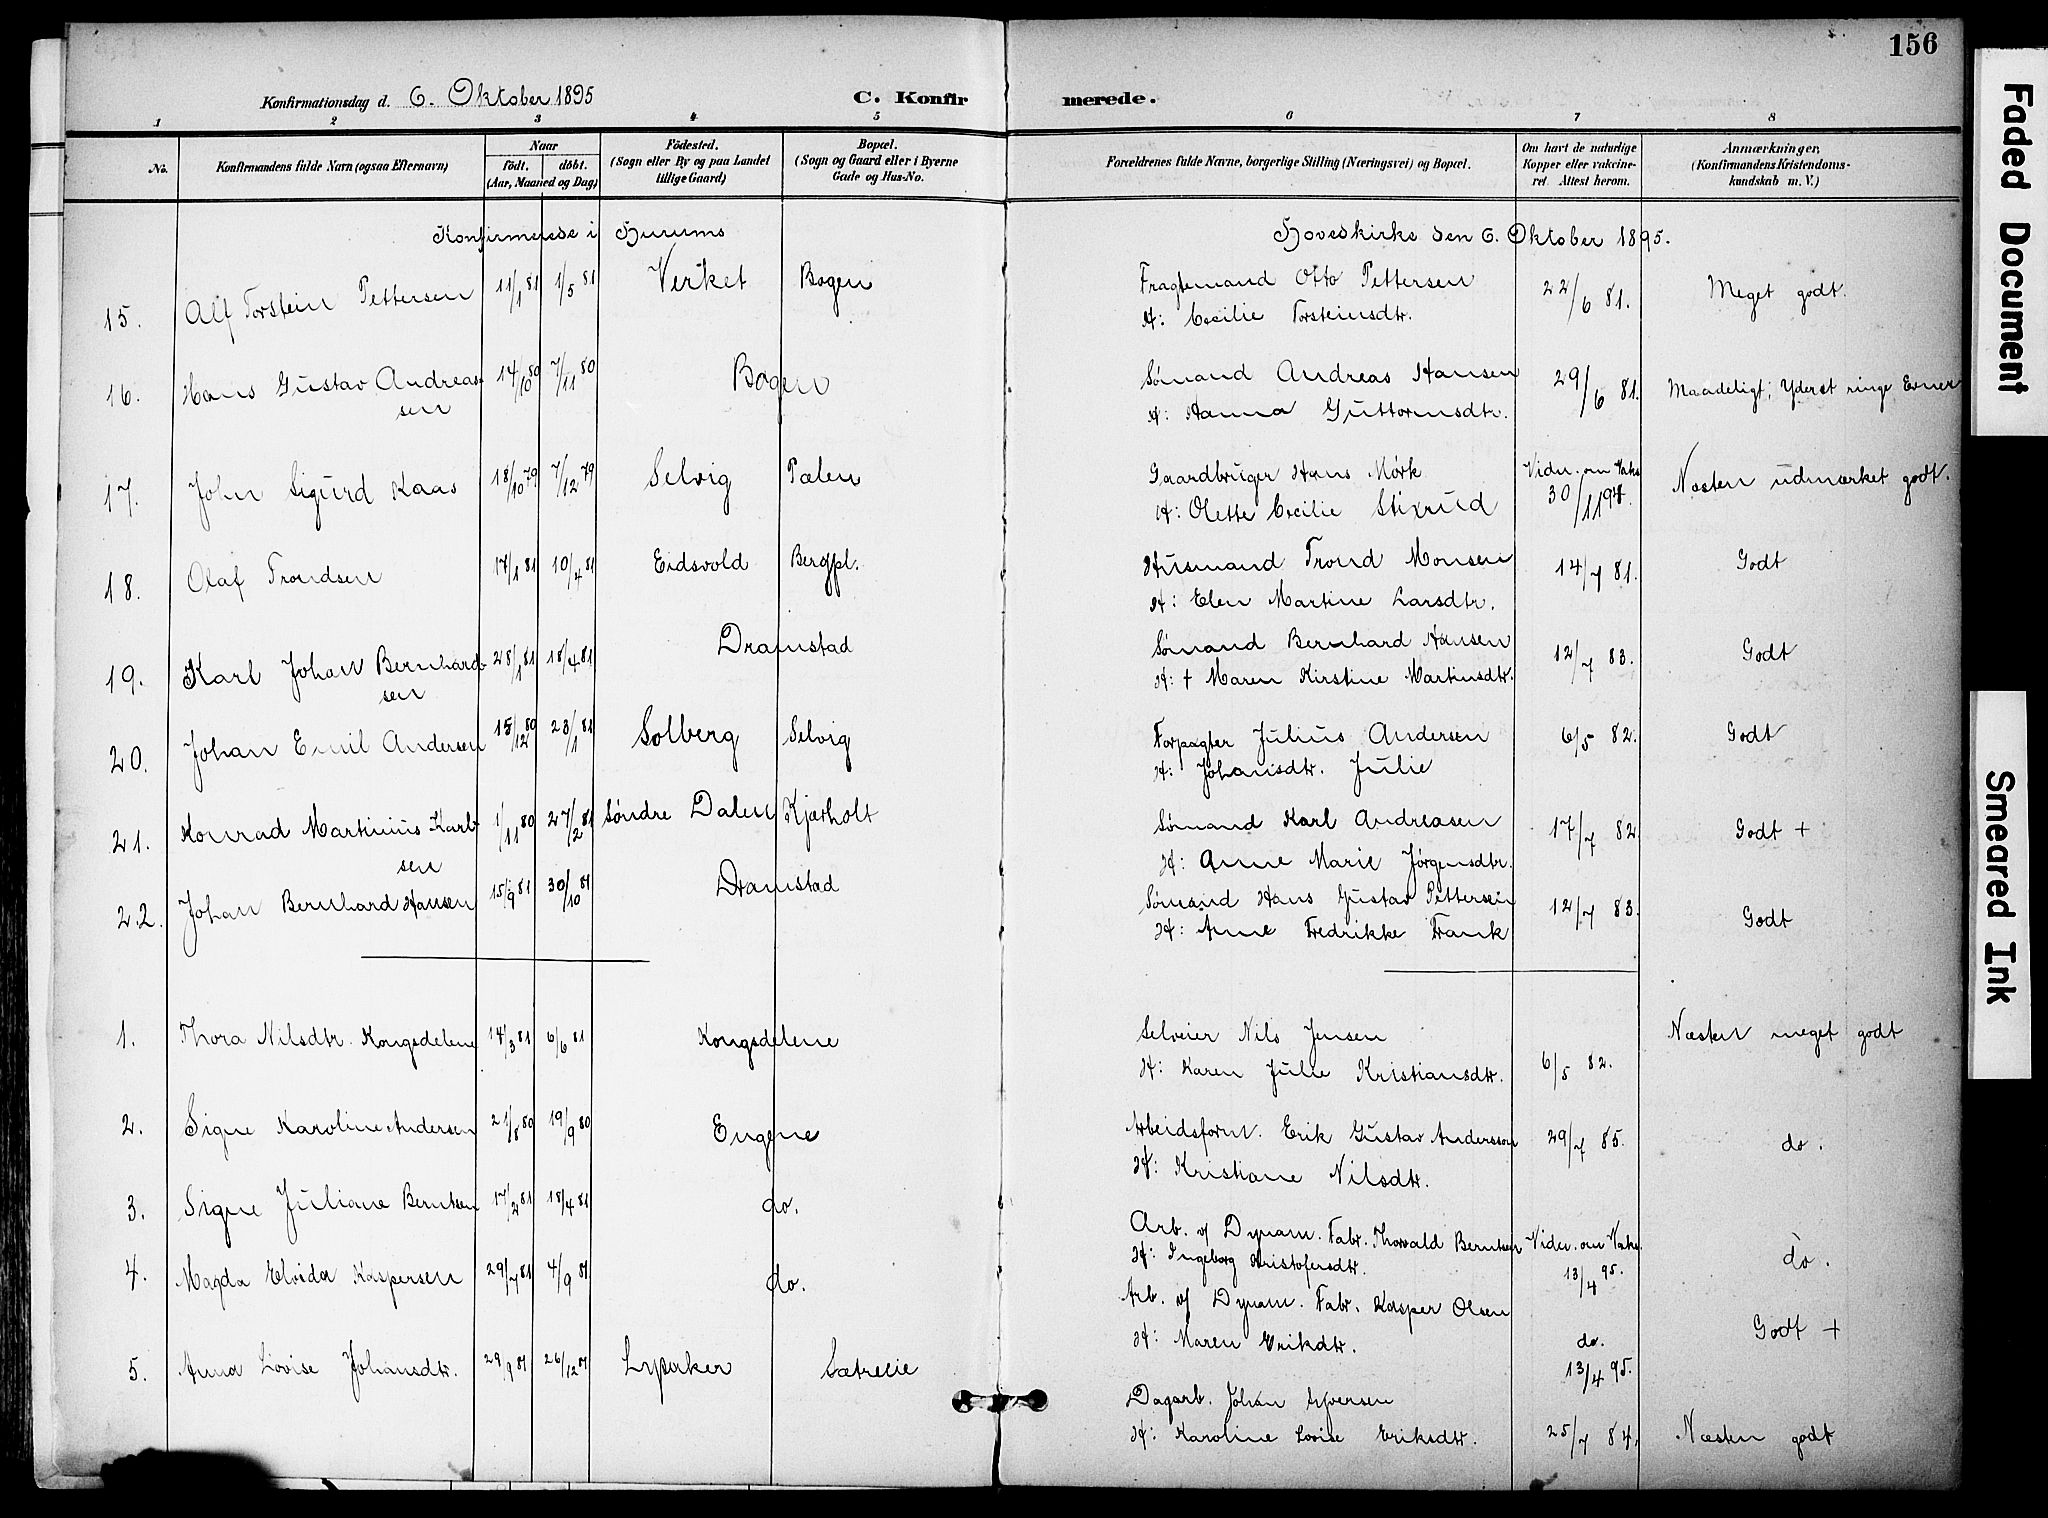 156
Konfirmationsdag d. 6. Oktober 1895 C. Konfirmerede.
1 2 3 4 5 6 7 8
No. Konfirmandens fulde Navn (ogsaa Efternavn) Naar födt. döbt. (Aar, Maaned og Dag) Födested. (Sogn eller By og paa Landet tillige Gaard) Bopæl. (Sogn og Gaard eller i Byerne Gade og Hus-No. Forældrenes fulde Navne, borgerlige Stilling (Næringsvei) og Bopæl. Om havt de naturlige Kopper eller vakcineret. Attest herom. Anmærkninger, (Konfirmandens Kristendomskundskab m. V.)
Konfirmerede i Hurums Hovedkirke den 6. Oktober 1895.
15. Alf Torstein Pettersen 11/1 81 1/5 81 Verket Bogen Fragtemand Otto Pettersen 22/6 81. Meget godt.
H: Cecilie Torsteinsdtr.
16. Hans Gustav Andreas- 14/10 80 7/11 80 Bogen Sømand Andreas Hansen 29/6 81. Maadeligt; Yderst ringe Evner
sen H: Hanna Guttormsdtr.
17. John Sigurd Kaas 18/10 79 7/12 79 Selvig Palen Gaardbruger Hans Mørk Vidn. om Vaks. Næsten udmærket godt.
H: Olette Cecilie Stixrud 30/11 94.
18. Olaf Trondsen 17/1 81 10/4 81 Eidsvold Bergpl. Husmand Trond Monsen 14/7 81. Godt
H: Elen Martine Larsdtr.
19. Karl Johan Bernhard- 28/1 81 18/4 81 Dramstad Sømand Bernhard Hansen 12/7 83. Godt
sen H: + Maren Kirstine Martinsdtr.
20. Johan Emil Andersen 15/12 80 23/1 81 Solberg Selvig Forpagter Julius Andersen 6/5 82. Godt
H: Johansdtr. Julie
21. Konrad Martinius Karl- 1/11 80 27/2 81 Søndre Dalen Kjærholt Sømand Karl Andreasen 17/7 82 Godt +
sen H: Anne Marie Jørgensdtr.
22. Johan Bernhard Hansen 15/9 81 30/10 81 Dramstad Sømand Hans Gustav Pettersen 12/7 83. Godt
H: Anne Fredrikke Frank
1. Thora Nilsdtr. Kongsdelene 14/3 81 6/6 81 Kongsdelene Selveier Nils Jensen 6/5 82. Næsten meget godt
H: Karen Julie Kristiansdtr.
2. Signe Karoline Andersen 21/8 80 19/9 80 Engene Arbeidsform. Erik Gustav Andersson 29/7 85. do.
H: Kristiane Nilsdtr.
3. Signe Juliane Berntsen 17/2 81 18/4 81 do. Arb. v/ Dynam. Fabr. Thorvald Berntsen Vidn. om Vaks. do.
H: Ingeborg Kristofersdtr. 13/4 95.
4. Magda Elvida Kaspersen 29/7 81 4/9 81 do. Arb. v/ Dynam. Fabr. Kasper Olsen do. Godt +
H: Maren Eriksdtr. 13/4 95.
5. Anna Lovise Johansdtr. 29/9 81 26/12 81 Lysaker Sætreeie Dagarb. Johan Syversen
H: Karoline Lovise Eriksdtr. 25/7 84. Næsten godt
Faded Document
Smeared Ink